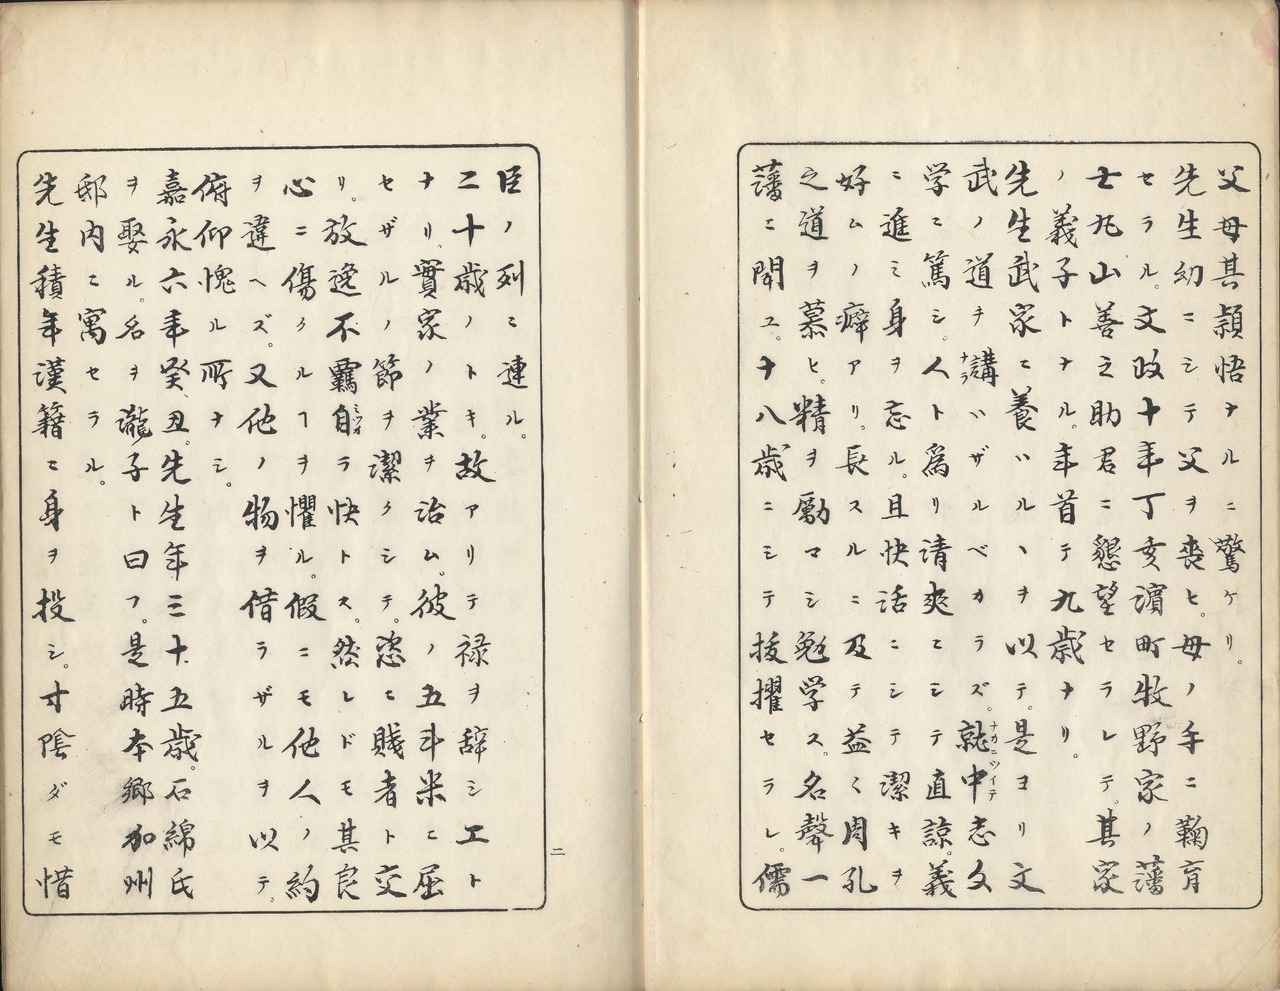 父母其頴悟ナルニ驚ケリ。
先生幼ニシテ父ヲ喪ヒ。母ノ手ニ鞠育
セラル。文政十年丁亥濵町牧野家ノ藩
士丸山善之助君ニ懇望セラレテ。其家
ノ義子トナル。年首テ九歳ナリ。
先生武家ニ養ハルヽヲ以テ。是ヨリ文
武ノ道ヲ講ハザルベカラズ。就中志文
ナラ
ナカニツイテ
学ニ篤シ。人ト爲リ清爽ニシテ直諒。義
ニ進ミ身ヲ忘ル。且快活ニシテ潔キヲ
好ムノ癖アリ。長スルニ及テ益々周孔
之道ヲ慕ヒ。精ヲ勵マシ勉学ス。名聲一
藩ニ聞ユ。十八歳ニシテ抜擢セラレ。儒
臣ノ列ニ連ル。
二十歳ノトキ。故アリテ禄ヲ辞シエト
ナリ。實家ノ業ヲ治ム。彼ノ五斗米ニ屈
セザルノ節ヲ潔クシテ。恣ニ賤者ト交
リ。放逸不羈自ラ快トス。然レドモ其良
ミヅカ
心ニ傷クルヿヲ懼ル。假ニモ他人ノ約
ヲ違ヘズ。又他ノ物ヲ借ラザルヲ以テ。
俯仰愧ル所ナシ。
嘉永六年癸丑。先生年三十五歳。石綿氏
ヲ娶ル。名ヲ瀧子ト曰フ。是時本郷加州
邸内ニ寓セラル。
先生積年漢籍ニ身ヲ投シ。寸陰ダモ惜
二